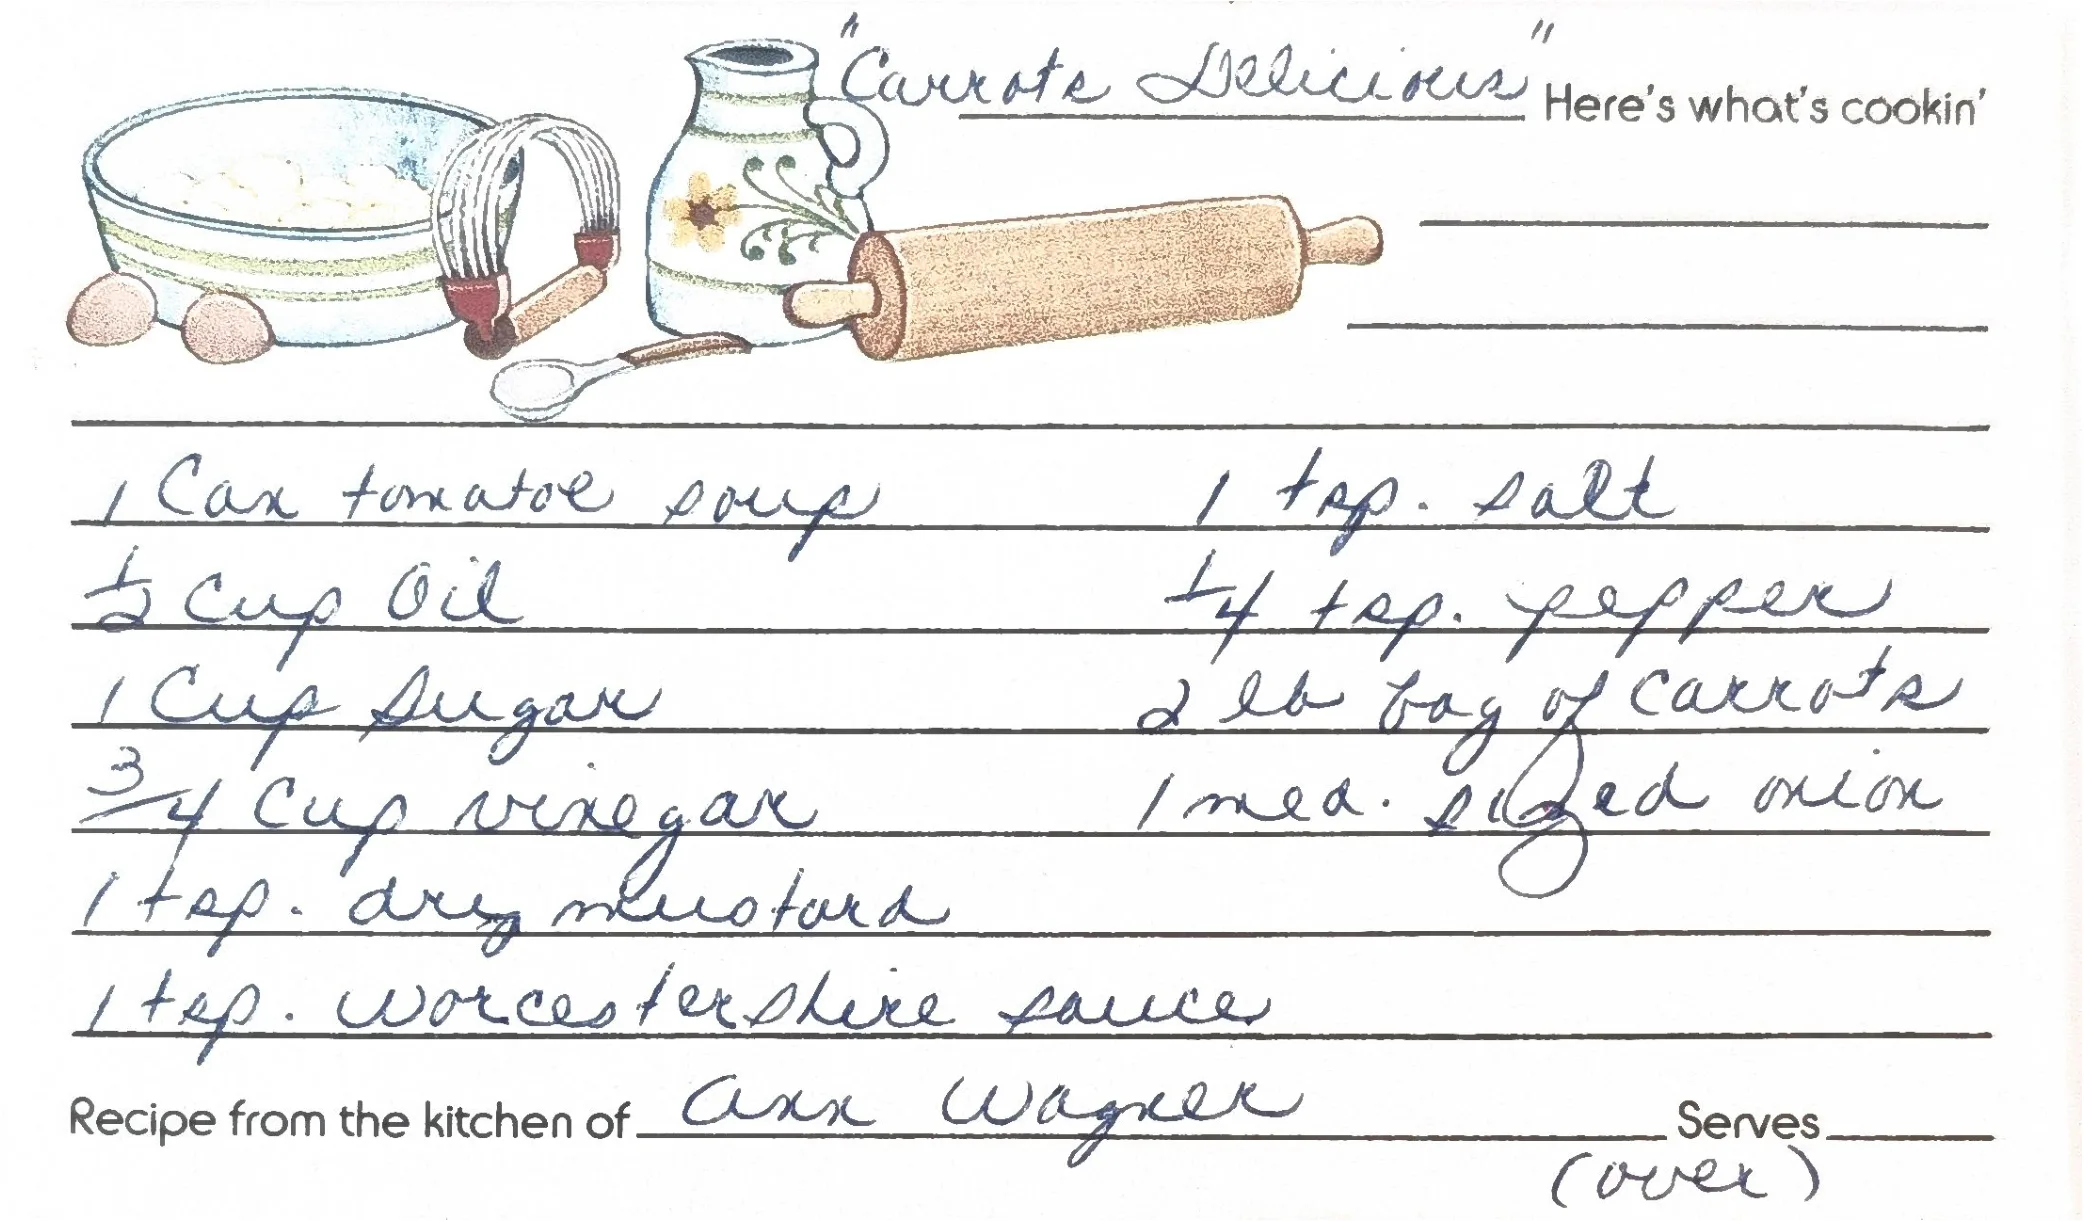 "Carrots Delicious" Here's what's cookin'
1 Can tomatoe soup
1/2 Cup Oil
1 Cup Sugar
3/4 Cup vinegar
1 tsp. dry mustard
1 tsp. Worcestershire sauce
1 tsp. salt
1/4 tsp. pepper
2 lb bag of carrots
1 med. sized onion
Recipe from the kitchen of Ann Wagner Serves
(over)